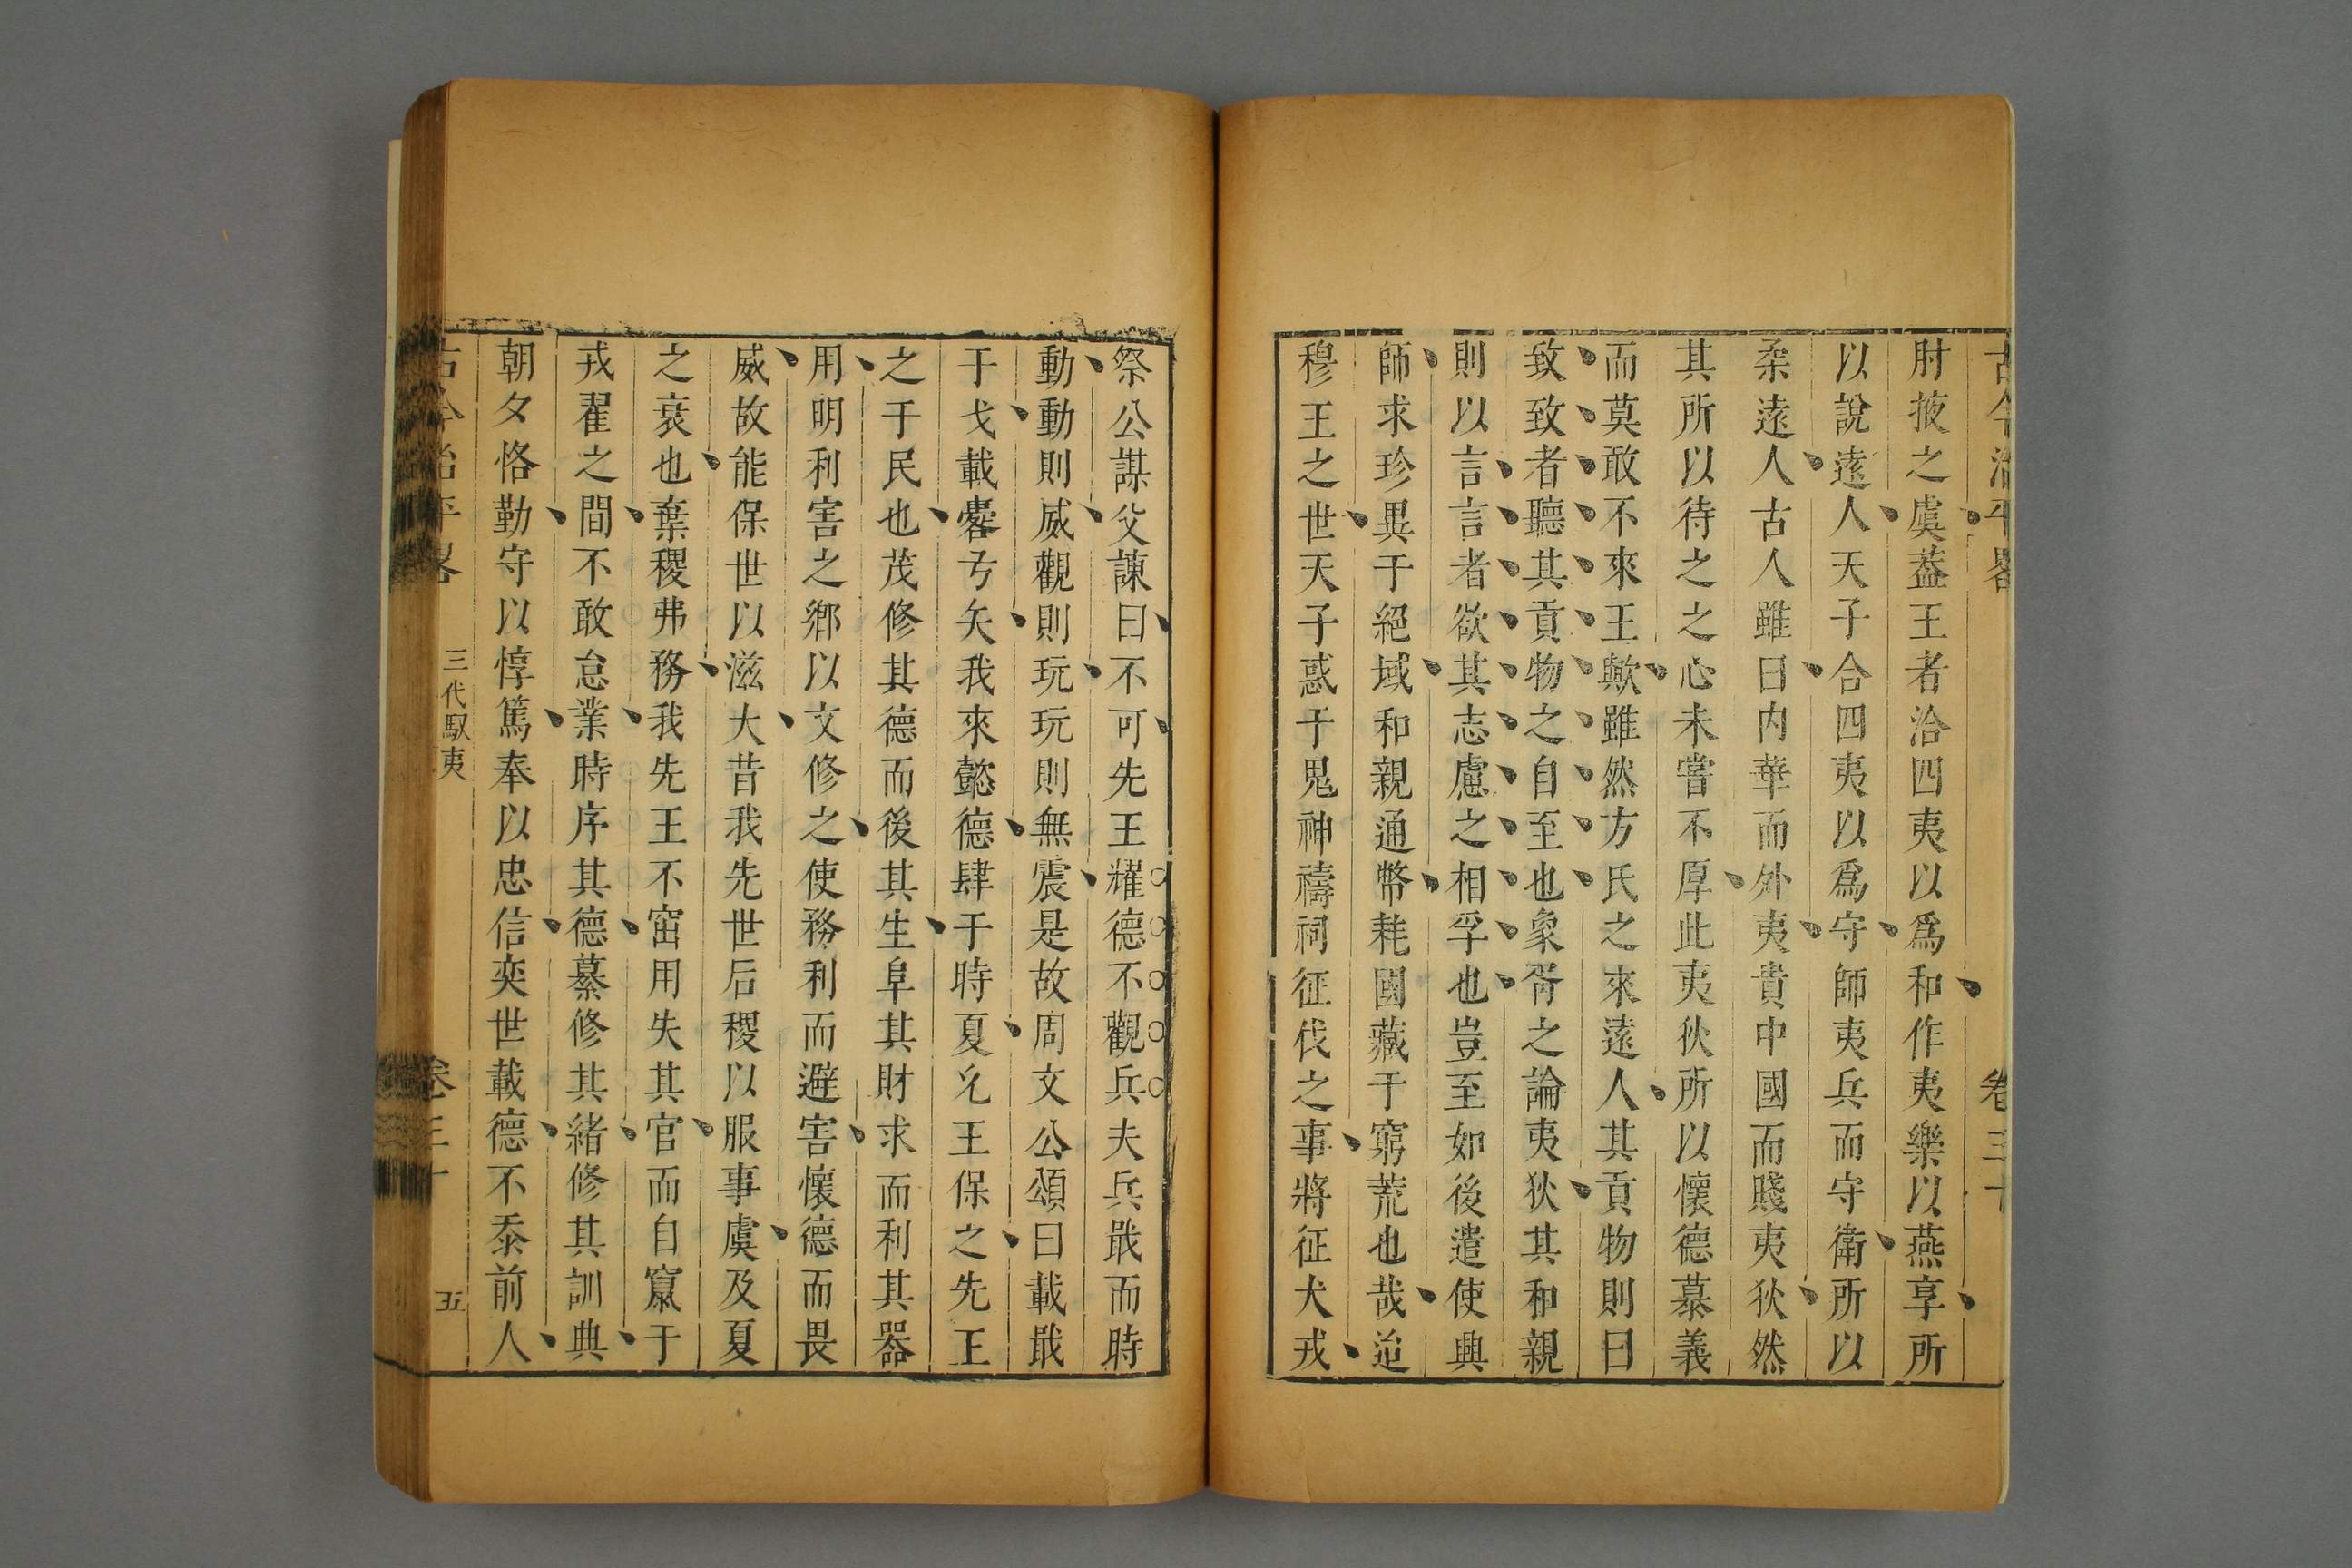 古今治平畧 卷三十
肘掖之虞葢王者洽四夷以爲和作夷樂以燕享所
以說遠人天子合四夷以爲守師夷兵而守衛所以
柔遠人古人雖曰内華而外夷貴中國而賤夷狄然
其所以待之之心未嘗不厚此夷狄所以懷德慕義
而莫敢不來王歟雖然方氏之來遠人其貢物則曰
致致者聽其貢物之自至也象胥之論夷狄其和親
則以言言者欲其志慮之相孚也豈至如後遣使興
師求珍異于絕域和親通幣耗國藏于窮荒也哉迨
穆王之世天子惑于鬼神禱祠征伐之事將征犬戎
祭公謀父諫曰不可先王耀德不觀兵夫兵戢而時
動動則威觀則玩玩則無震是故周文公頌曰載戢
干戈載櫜弓矢我來懿德肆于時夏允王保之先王
之于民也茂修其德而後其生阜其財求而利其器
用明利害之鄉以文修之使務利而避害懷德而畏
威故能保世以滋大昔我先世后稷以服事虞及夏
之衰也棄稷弗務我先王不窋用失其官而自竄于
戎翟之間不敢怠業時序其德纂修其緒修其訓典
朝夕恪勤守以惇篤奉以忠信奕世載德不忝前人
古今治平畧 三代馭夷 卷三十 五